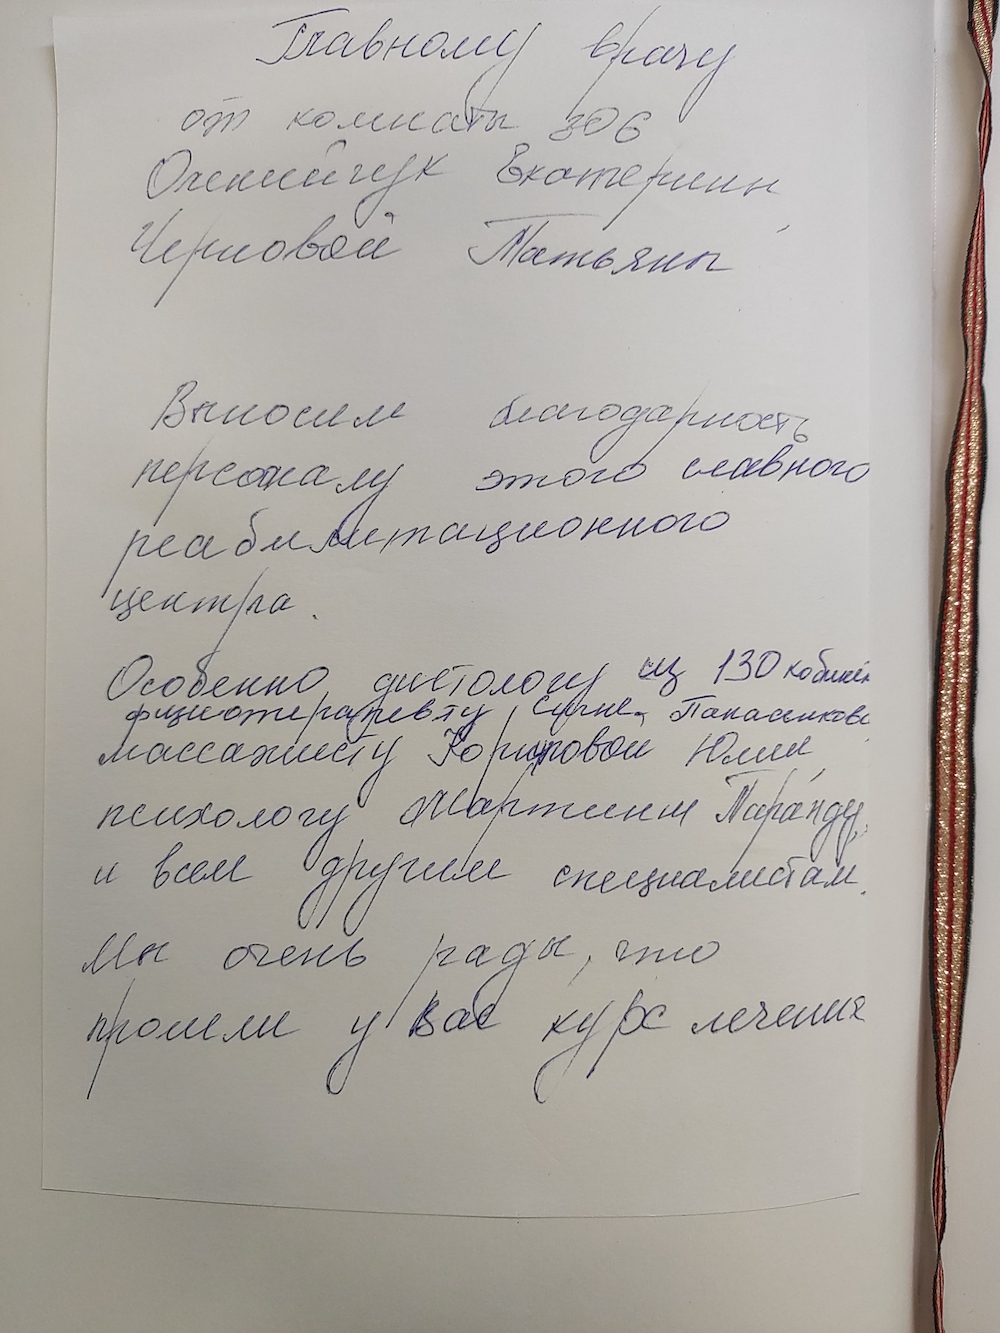 Главному врачу
от комнаты 306
Екатерины
Черновой Татьяны
Выносим благодарность
персоналу этого славного
реабилитационного
центра.
Особенно диетологу из 130 кабинет
физиотерапевту
массажисту Юлии,
психологу
и всем другим специалистам.
Мы очень рады, что
прошли у Вас курс лечения